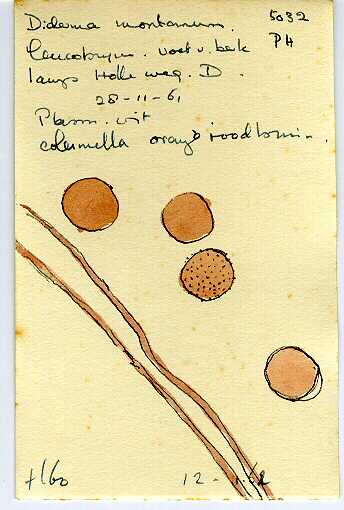 Diderma montanum.
5032
PH
Leucobryum. voet v. berk
langs Holle weg. D.
28-11-61
Plasm. wit
columella oranje roodbruin.
1160
12-1-62